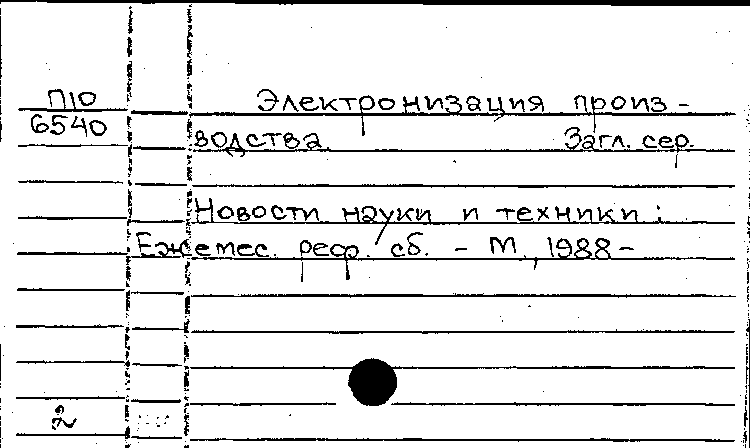 П10 Электронизация произ-
6540 водства. Загл. сер.
Новости науки и техники:
Ежемес. реф. сб. - М., 1988-
2